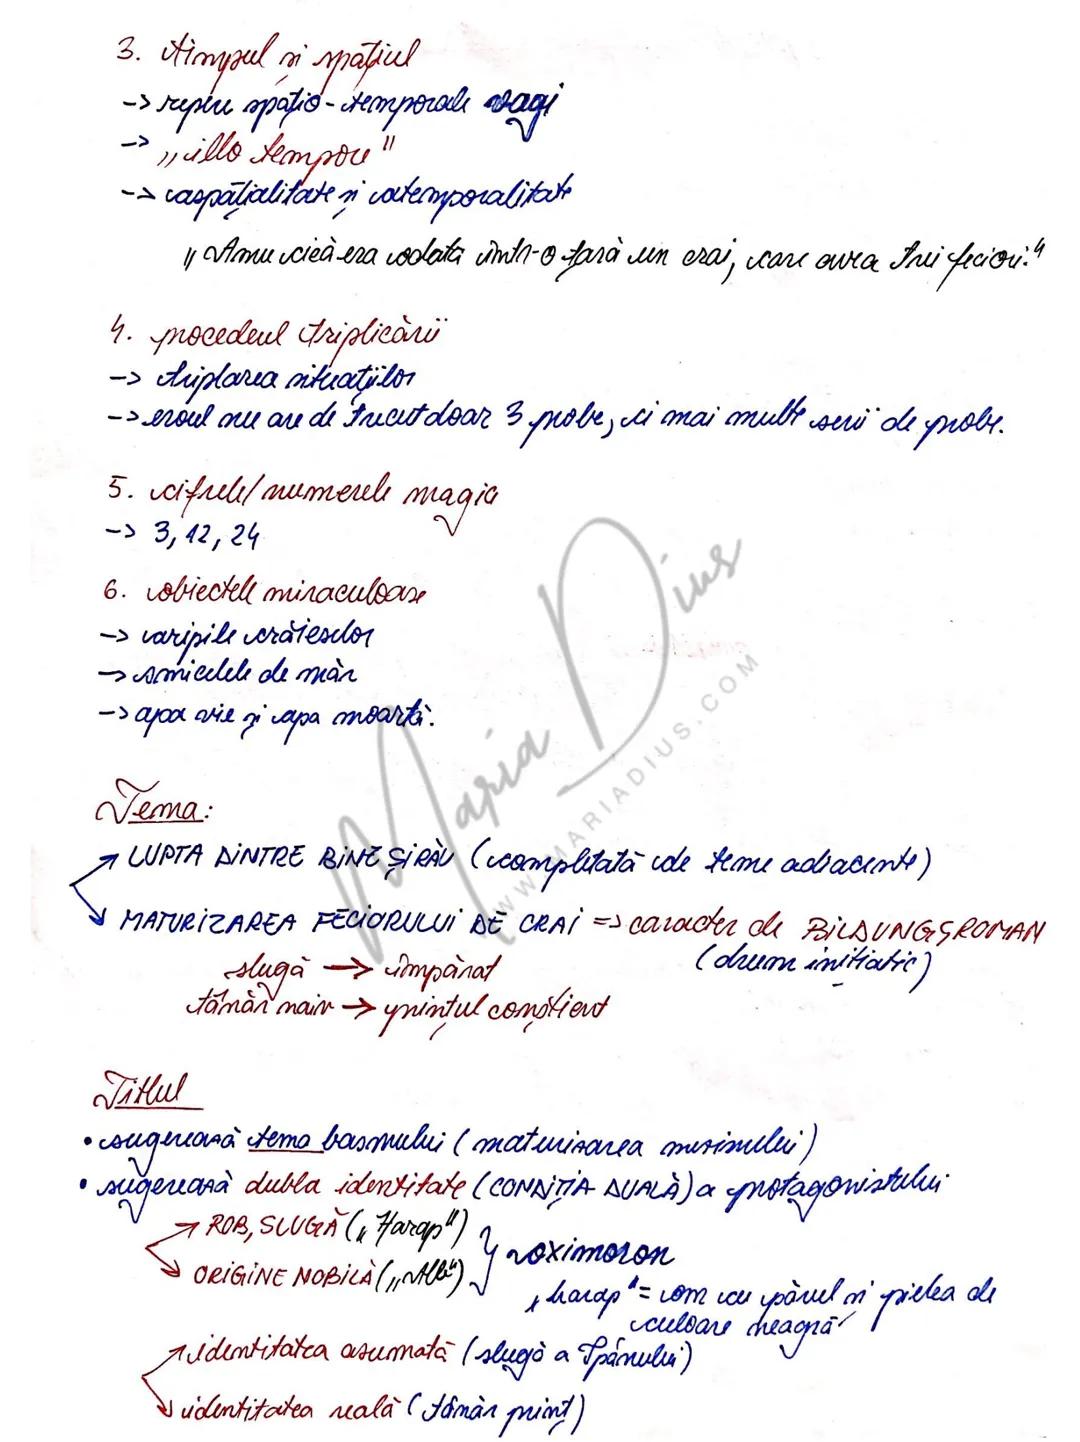 3. timpul și spațiul
-> repere spațio-temporale vagi
-> „illo tempore"
-> aspațialitate și atemporalitate
„Amu cică era odată într-o țară un crai, care avea trei feciori."
4. procedeul triplicării
-> triplarea situațiilor
-> eroul nu are de trecut doar 3 probe, ci mai multe serii de probe.
5. cifrele/numerele magice
-> 3, 12, 24
6. obiectele miraculoase
-> aripile crăieselor
-> smicelele de măr
-> apa vie și apa moartă.
Tema:
LUPTA DINTRE BINE ȘI RĂU (completată de teme adiacente)
MATURIZAREA FECIORULUI DE CRAI => caracter de BILDUNGSROMAN
slugă -> împărat (drum inițiatic)
tânăr naiv -> prințul conștient
Titlul
• sugerează tema basmului (maturizarea mezinului)
• sugerează dubla identitate (CONDIȚIA DUALĂ) a protagonistului
ROB, SLUGĂ („Harap")
ORIGINE NOBILĂ („Alb") oximoron
„harap" = om cu părul și pielea de
culoare neagră
identitatea asumată (slugă a Spânului)
identitatea reală (tânăr prinț)
Maria Dius
WWW.MARIADIUS.COM